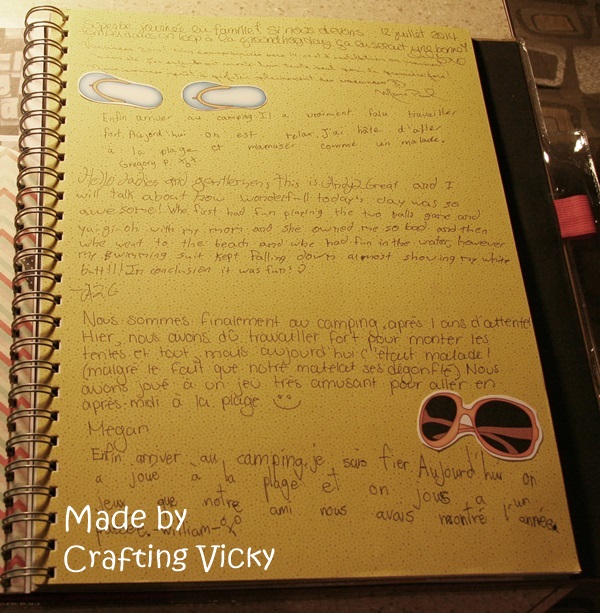 Superbe journée en famille! Si nous devons 12 juillet 2014
on loop à la groundhog day, ça en serait une bonne! xoxo
Enfin arriver au camping. Il a vraiment falu travailler
fort. Aujourd'hui on est relax. J'ai hâte d'aller
à la plage et mamuser comme un malade.
Gregory P.
Hello ladies and gentlemens, this is Andy2Great and I
will talk about how wonderfull today's day was so
awesome! Whe first had fun playing the two balls game and
yu-gi-oh with my mom and she owned me so bad and then
whe went to the beach and whe had fun in the water, however
my swimming suit kept falling down almost showing my white
butt!!! In conclusion it was fun!
-A2G
Nous sommes finalement au camping, après 1 ans d'attente!
Hier, nous avons dû travailler fort pour monter les
tentes et tout, mais aujourd'hui c'étaut malade!
(malgré le fait que notre matelat ses dégonflé) Nous
avons joué à un jeu très amusant pour aller en
après-midi à la plage.
Megan
Enfin arriver au camping, je sais fier. Aujourd'hui on
a joue à la plage et on joue a un
jeux que notre ami nous avais montré l'année
william
Made by
Crafting Vicky